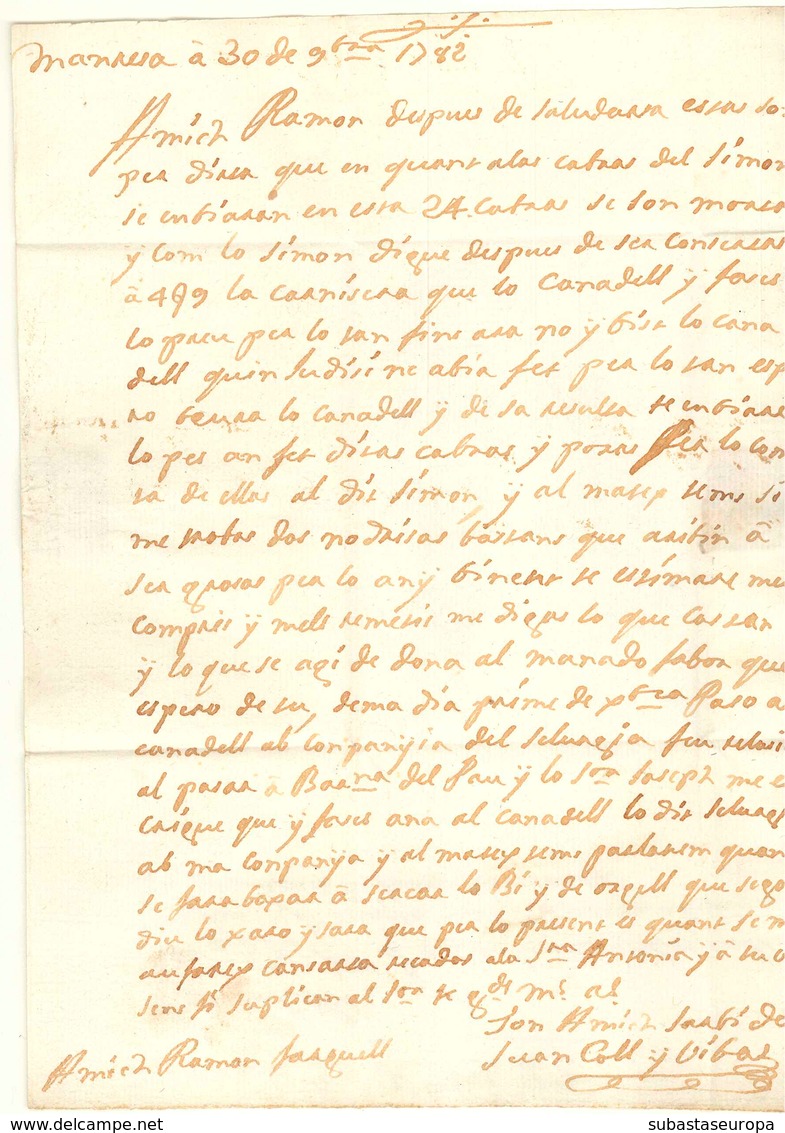 Manresa â 30 de 9bra 1782
Amich Ramon despues de saludarra estas so
per dirra que en quant alas cabras del simon
se enbiaran en esta 24. cabras se son mores
y com lo simon digue despues de ser
â 489 la carnisera que lo Canadell y fases
lo preu per lo tan fins ara no y bist lo cana
dell quin Judisi ne abia fet per lo tan esp
ro beura lo canadell y de sa resulta te enbiare
lo pes an fet ditas cabras y poras Per lo con
ta de ellas al dit simon, y al matex tems si
me trobas dos nodrisas bastans que aribin â
ser grosas per lo any binent te estimare me
compris y mels remetis me digas lo que costan
y lo que se agi de dona al manado fabor que
espero de tu, dema dia prime de xbra Paso a
canadell ab Companyia del
al pasar â Barna del Pau y lo Sor Joseph me e
que y fases ana al Canadell lo dit
ab ma Companyia y al matex tems parlarem quan
se fara baxar â sercar lo Bi y de orgull que sego
diu lo xaro y sara que per lo present es quant se m
recados ala Sra Antonia y â tu
sens fi suplican al Sor te gde ms as
Son Amich
Juan Coll y Vibas
Amich Ramon
subastaseuropa